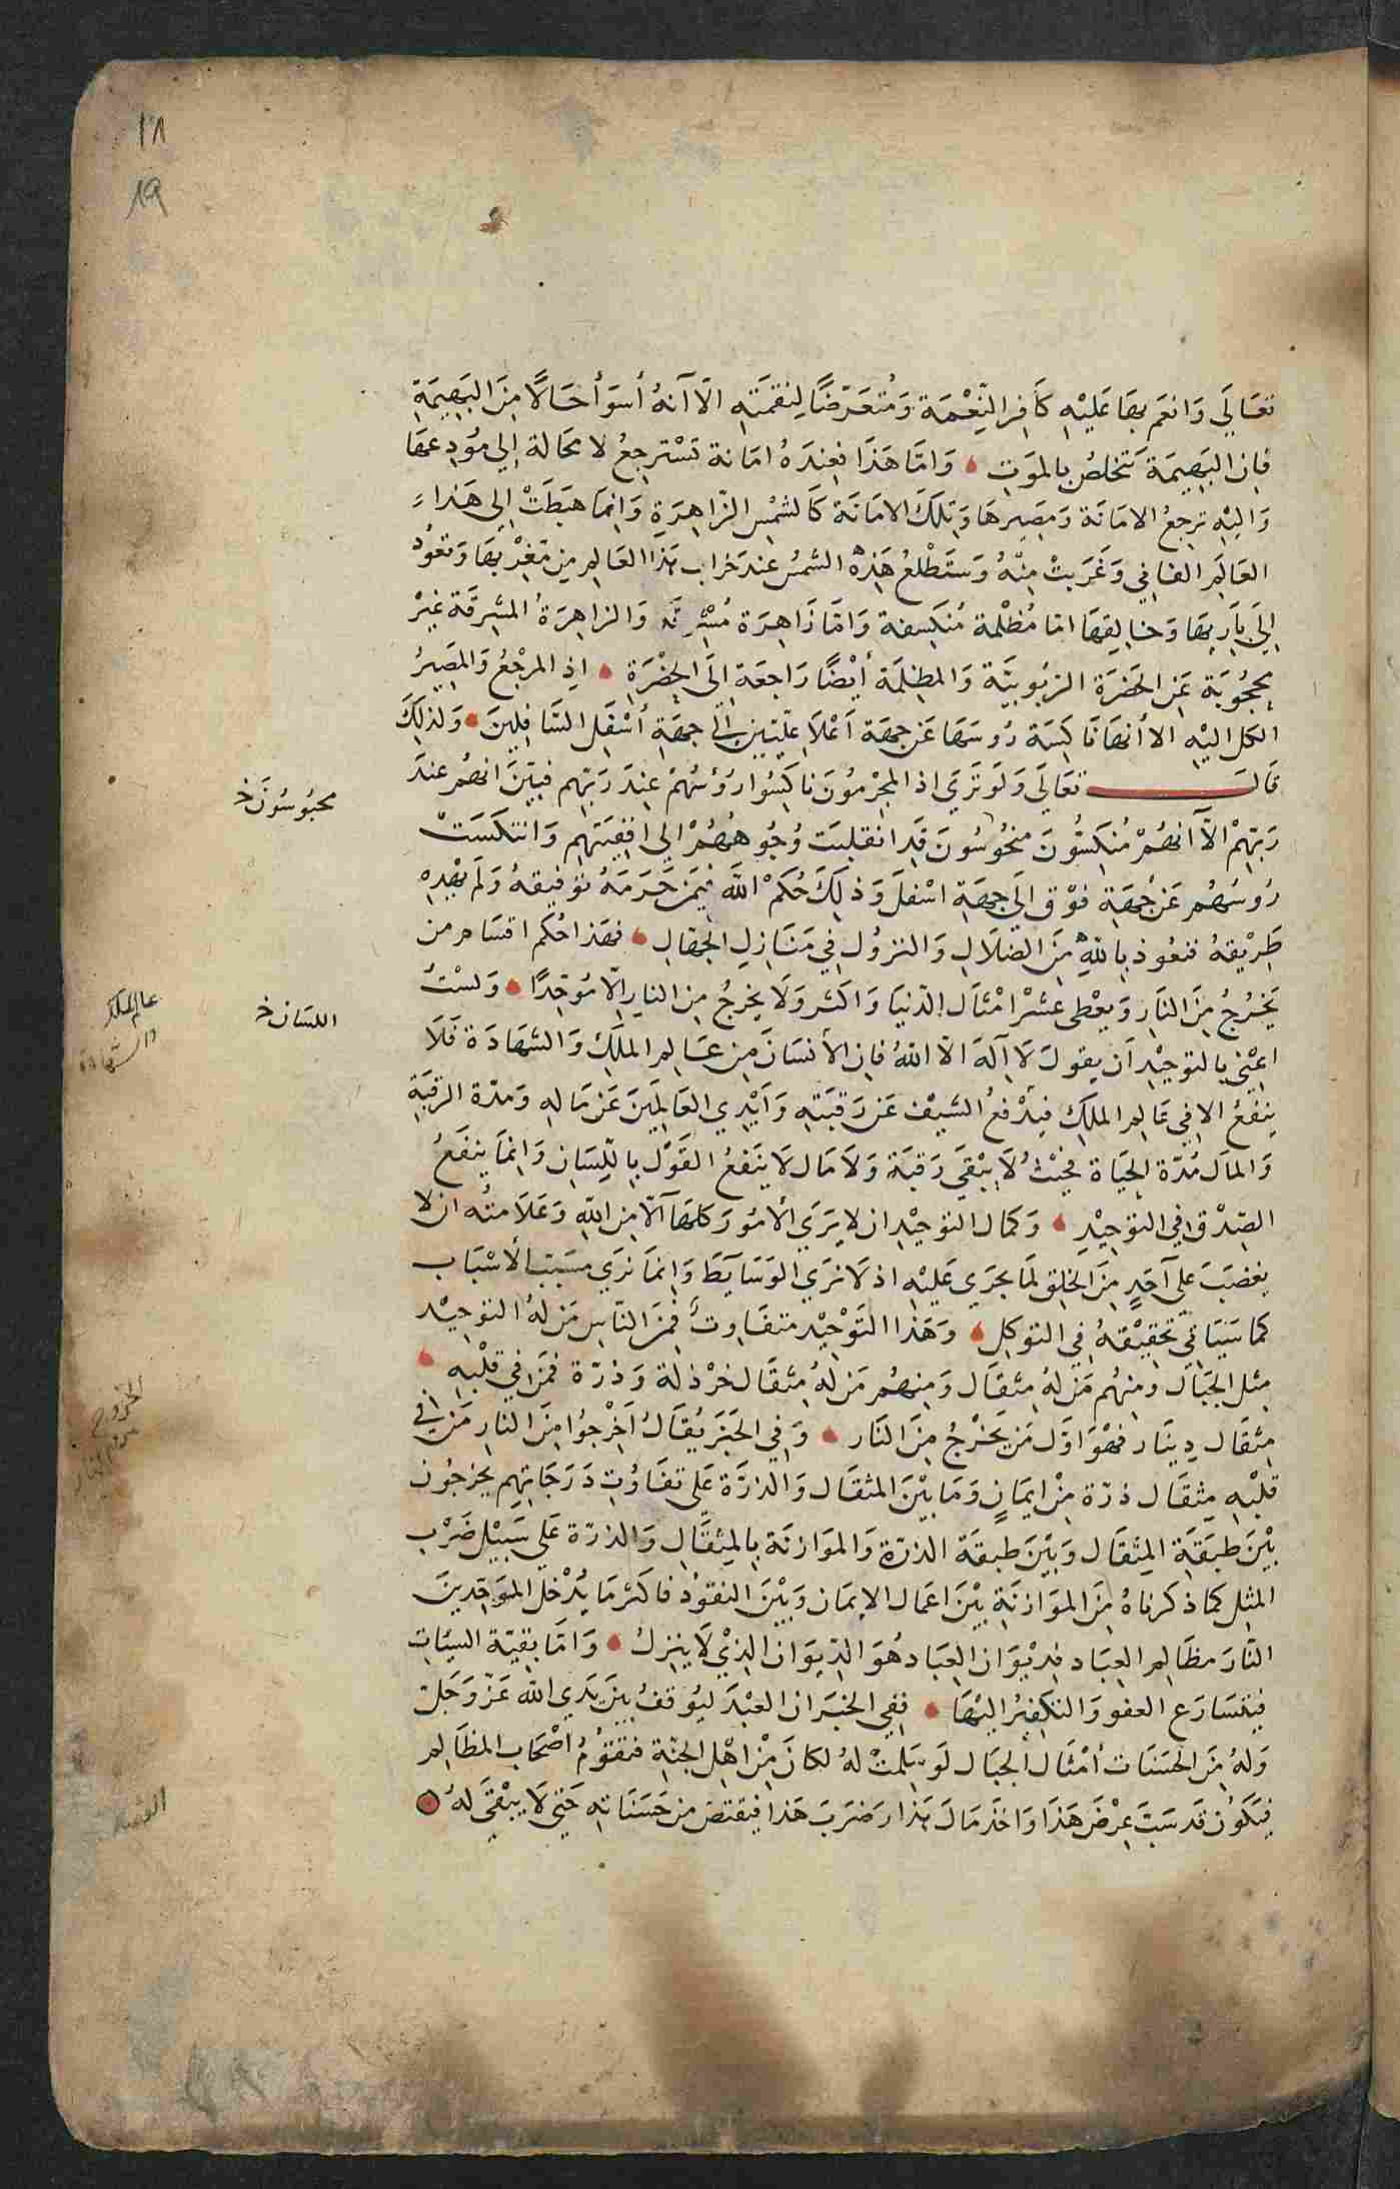 ١٨
١٩
تعَالَى وَانعَم بهَا عَليْهِ كَافِر النِّعْمَة وَمُتعَرّضًا لِنقمَتِهِ الّا أنهُ أسوَأ حَالًا مِنَ البَهِيمَةِ
فان البَهِيمَة تَتخلصُ بالموَتِ ، وَامّا هَذَا فعِندَهُ امَانة تسْترجِعُ لا محَالة إلي مُوَدِعهَا
وَاليْهِ ترجعُ الامَانة وَمصَيِرهَا وَتِلكَ الامَانَة كَالشمْسِ الزّاهِرَةِ وَانمَا هبَطَتْ اِلى هَذا
العَالَمِ الفانِي وَغَربتْ مِنْهُ وَستَطْلعُ هَذِهْ الشمسُ عندَ خراب هَذا العَالمِ مِن مَغرْبهَا وَتعُود
اِلَى بَاريهَا وَخالِقِهَا امّا مُظْلمة مُنكَسِفة وَامّا زَاهِرَة مُشْرِقَة وَالزاهِرَةُ المشْرِقَة غيْر
محجُوبَة عَنِ الحَضرَة الرّبُوبيَّة وَالمظِلمَة أيْضًا رَاجعَة اِلَى الحِضْرَةِ ، اِذِ المرْجعُ وَالمصَيرُ
الكل اليْهِ الا أنهَا نَاكِسَة رُوسَهَا عَن جهَة أعْلَا عِلّيّين اِلي جهَةِ أسْفَلِ السَّافِلينَ ، وَلذلِكَ
قَالَ تعَالَي وَلَو تَرَي اذ المجْرمُوُنَ نَاكِسُوا رُؤُسُهُمْ عِندَ رَبّهم فبيّنَ انهُم عندَ
رَبّهمْ الّا انهُمْ مُنكَسُّونَ منحُوسُونَ قَد انقلبَت وُجُوهُهُمْ الي اقفِيَتهِم وَانتكَسَتْ
رُوسُهُم عَن جُهَة فوْق اِلَى جهَةِ اسْفلَ وَذلِكَ حُكمْ الله فيمَن حَرَمَهُ توْفيقهُ وَلَم يهْدِهِ
طَرِيْقهُ فنعُوذ باللهِ مِنَ الضّلَالِ وَالنزوُلِ فِي مَنَازِلِ الجُهّالِ ، فهَذا حُكم اقسَام من
يَخرُجُ مِنَ النَارِ وَيعْطِي عشْر امْثَال الدّنيَا وَاكثَر وَلَا يخرجُ مِن النارِ الّا مُوَحِّدًا ، وَلسْتُ
اعْنِي بالتوْحِيْدِ اَن يقولَ لَا اِلَهَ الّا اللهُ فاِن الأنسَانَ مِن عَالمِ الملَكِ وَالشهَادَة فَلَا
ينفَعُ الا فِي عَالمِ الملَكِ فيَدْفعُ السّيْف عَن رَقبَتِهِ وَأيْدِي الغَانِمينَ عَن مَالِهِ وَمدّة الرّقبَةِ
وَالمالِ مُدّة الحيَاة فحَيْثُ لَا يبْقَي رَقبَة وَلَا مَال لَا ينَفعُ القوْل باللّسَانِ وَانمَا ينفَعُ
الصِّدْق فِي التوحِيْدِ ، وَكمال التوحِيْدِ ان لا يَرَي الأمُورَ كلهَا الّا مِن اللهِ وَعَلَامتُه ان لا
يغضبَ علَى أحَدٍ مِنَ الخلقِ لمَا يجرَي عَليْهِ اذ لَا نرَي الوَسَايَطَ وَانمَا نرَي مسَبّب الأسْبَاب
كما سَيَاتِي تحقِيْقهُ فِي التوكلِ ، وَهَذا التَوْحِيْد متفَاوتٌ فمِنَ النّاسِ مَن لهُ التوحِيْد
مِثل الجبَال ومنهُم مَن لهُ مِثقَال وَمِنهُم مَن لهُ مِثقَال خرْدَلة وَذرّة فمَن فِي قلْبِهِ ،
مِثقَال دِينَار فهُوَ اوّل مَن يَخرُجُ مِنَ النَار ، وَفِي الخَبَر يُقَالُ أخرِجُوا مِنَ النارِ مَن فِي
قلبْهِ مِثقَال ذرّة مِن اِيمَانٍ وَمَا بيْنَ المثقَال وَالذرَّة عَلَى تفَاوُتِ دَرَجَاتِهم يخرجُون
بيْنَ طبقَةِ المِثقَال وَبيْنَ طبقة الذرّة وَالموَازنَة بالمِثقَالِ وَالذرّة عَلي سَبيْل ضَرْب
المثِل كما ذكرنَاهُ مِنَ الموَازنَةِ بيْنَ اعمَال الايمَان وَبيْنَ النقوُد فاكثر مَا يُدْخلُ الموَحِّدينَ
النّارَ مظَالمِ العِبَاد فدِيْوَان العِبَاد هُوَ الدّيوَان الذِيْ لَا يتركُ ، وَامّا بقِيّة السيئاتِ
فيَتسَارَع العفو وَالتكفيْرُ اليْهَا ، ففِي الخبَر ان العبْدَ ليُوقَفُ بيْنَ يَدَي الله عَزّ وَجَلّ
وَلهُ مِنَ الحسَنَات أمْثَال الجبَال لَو سَلمتْ لهُ لكانَ مِنْ اهْلِ الجنّةِ فتقُومُ اصْحَاب المظَالِم
فيَكوُن قد سَبّ عِرْضَ هَذَا وَاخذ مَالَ هَذا وَضرَبَ هَذا فيَقتصّ مِن حَسَنَاتِهِ حَتي لَا يبْقَي لهُ
محبُوسُونَ خ
اللسَان خ
عالم الملك
والشهادة
الخروج
من النار